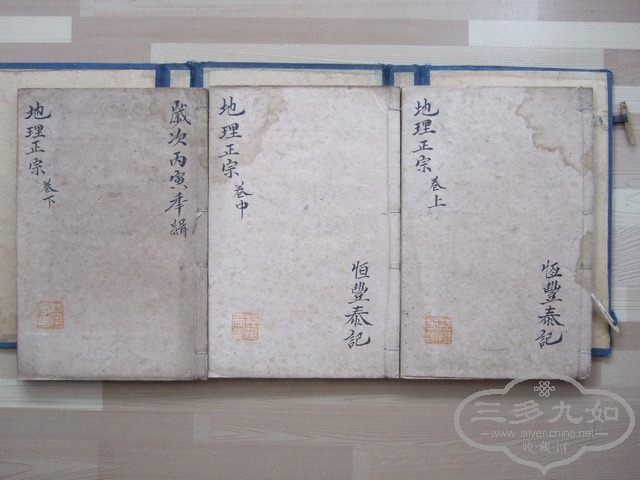 地理正宗 卷上
恒豐泰記
地理正宗 卷中
恒豐泰記
歲次丙寅年緝
地理正宗 卷下
三多九如
www.silver.china.net
收·藏·网